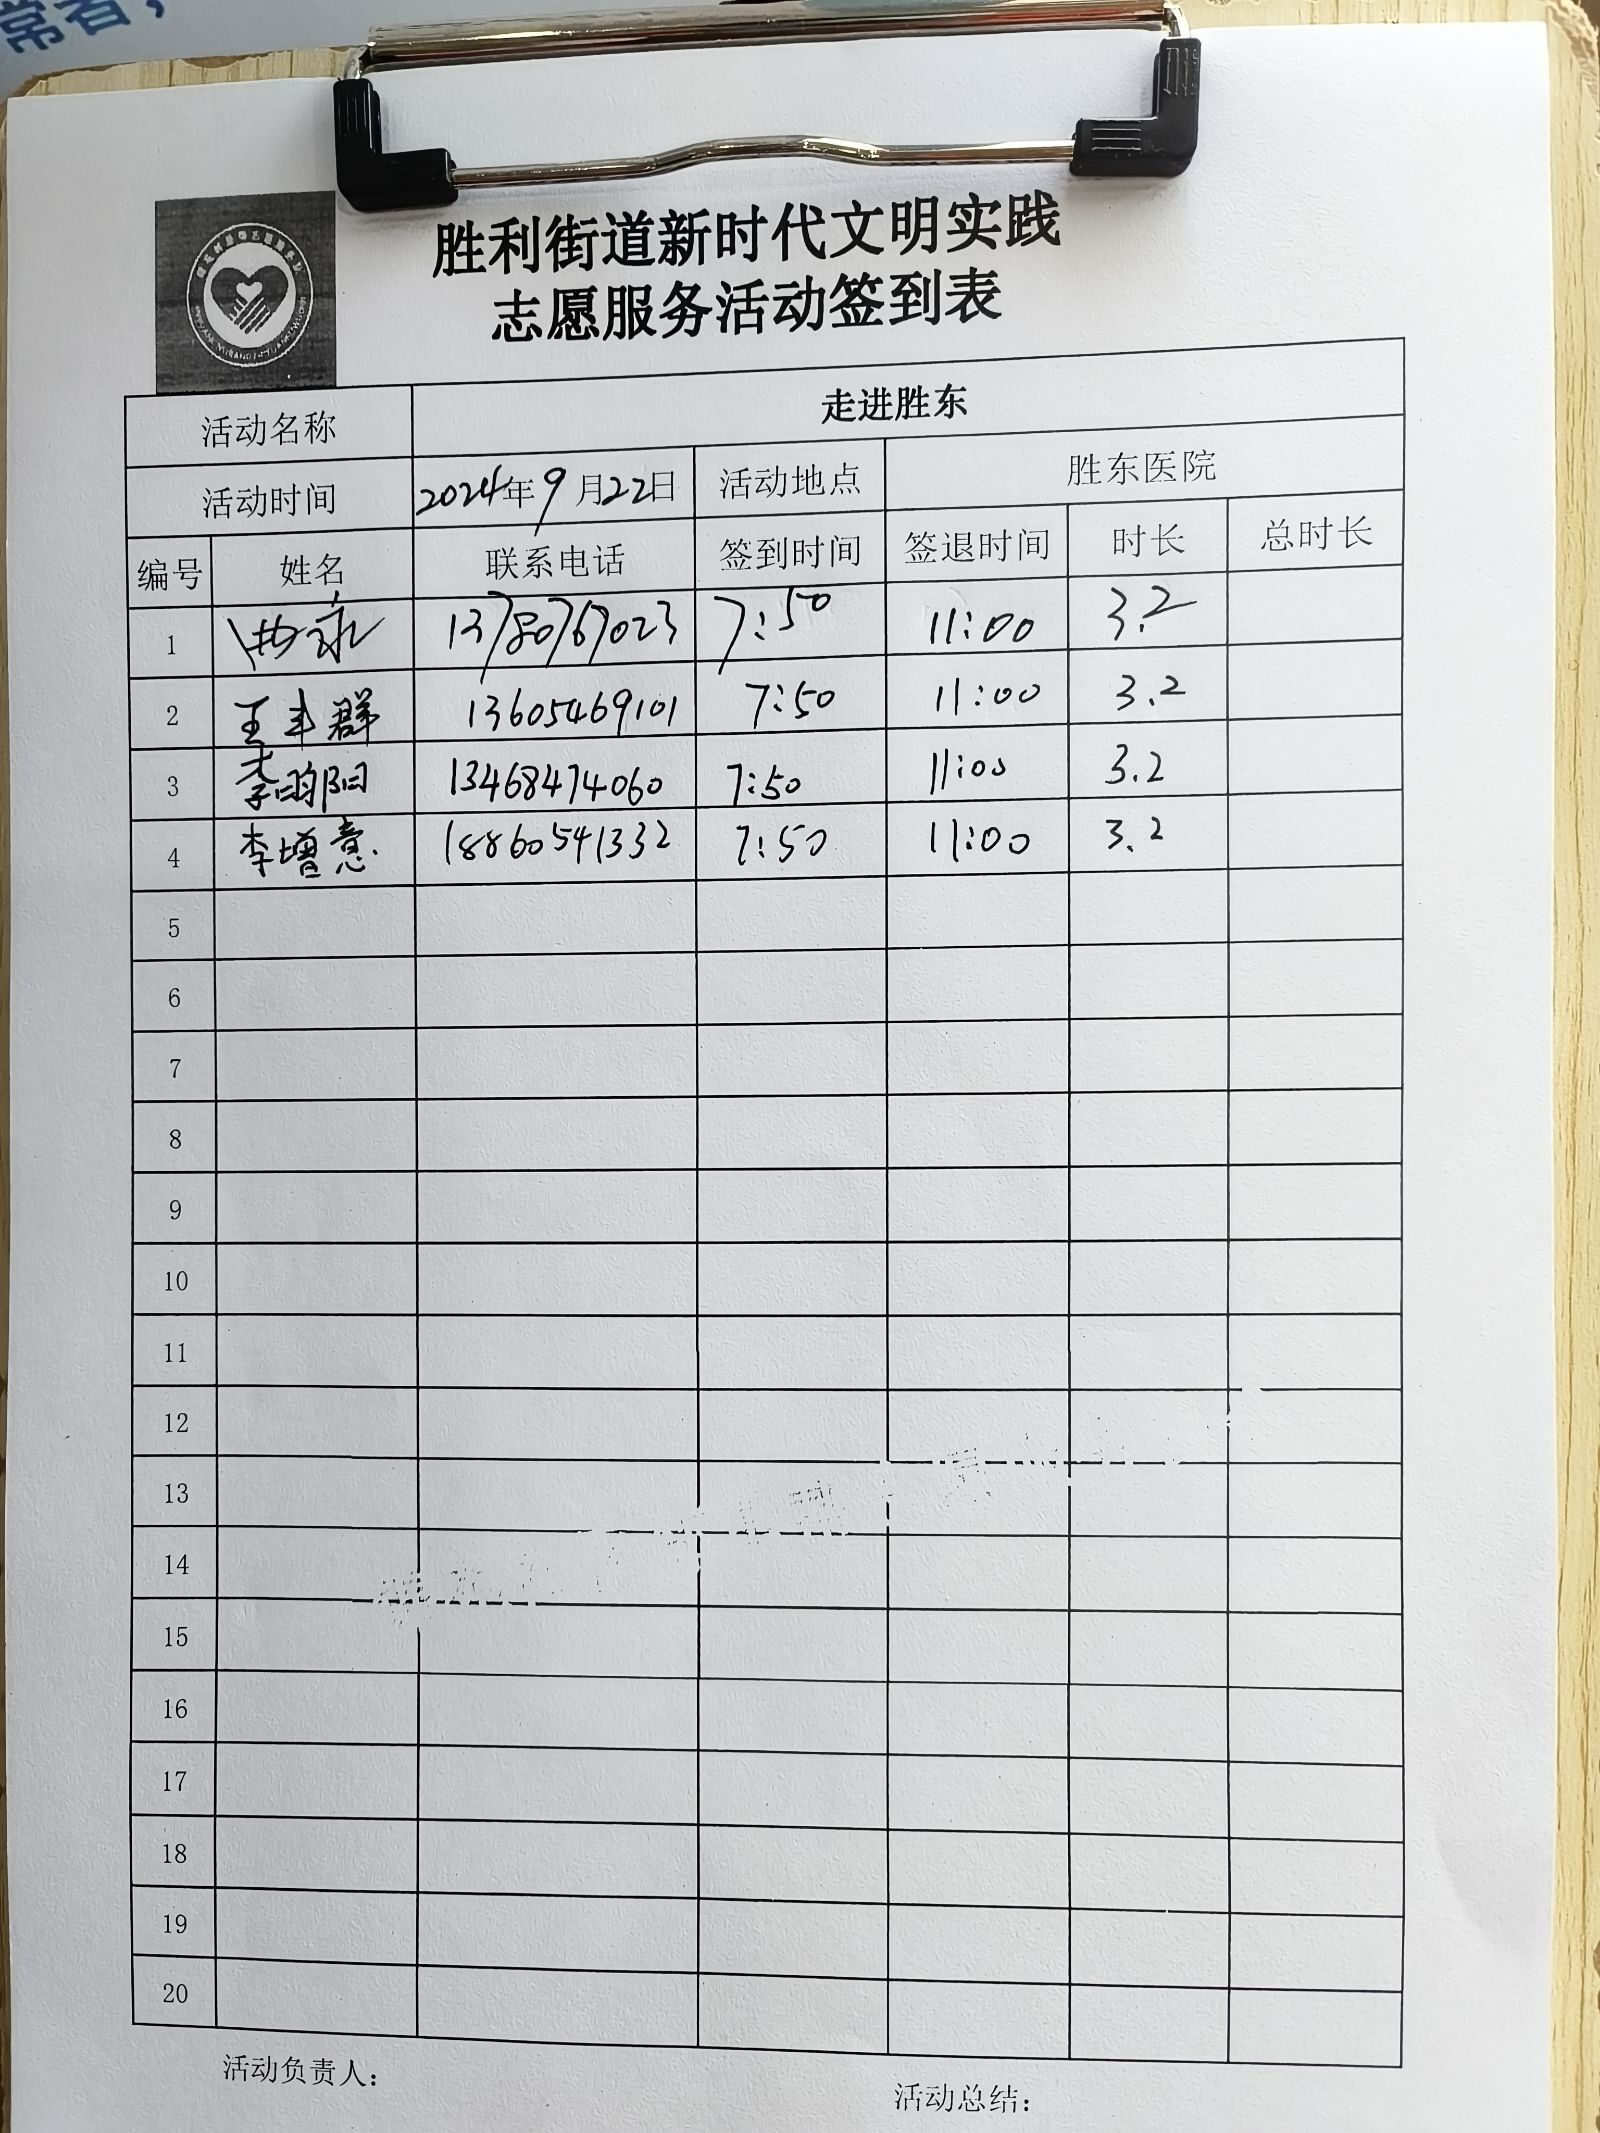 常者，
胜利街道新时代文明实践
志愿服务活动签到表
活动名称 走进胜东
活动时间 2024年9月22日 活动地点 胜东医院
编号 姓名 联系电话 签到时间 签退时间 时长 总时长
1 13780767023 7:50 11:00 3.2
2 王丰群 13605469101 7:50 11:00 3.2
3 李昀阳 13468474060 7:50 11:00 3.2
4 李增意 18860541332 7:50 11:00 3.2
5
6
7
8
9
10
11
12
13
14
15
16
17
18
19
20
活动负责人：
活动总结：